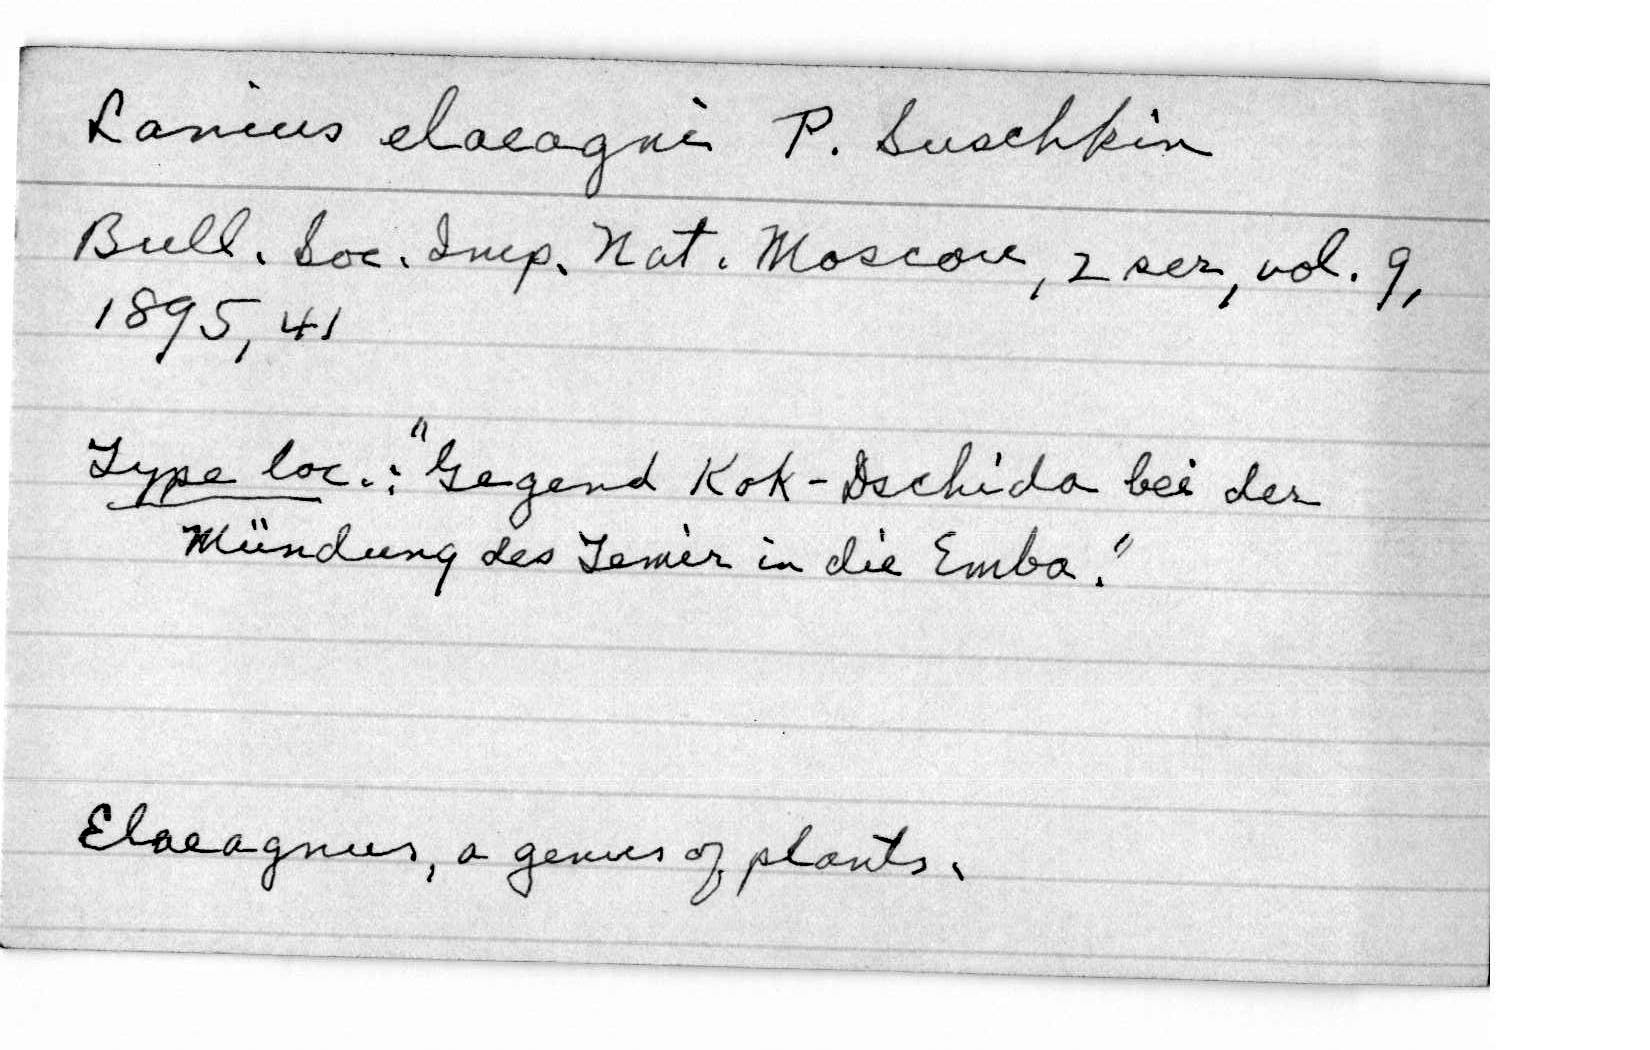 Lanius elaeagni P. Suschkin
Bull. Soc. Imp. Nat. Moscou, 2 ser, vol. 9,
1895, 41
Type loc.: "Gegend Kok-Dschida bei der
Mündung des Temir in die Emba."
Elaeagnus, a genus of plants.